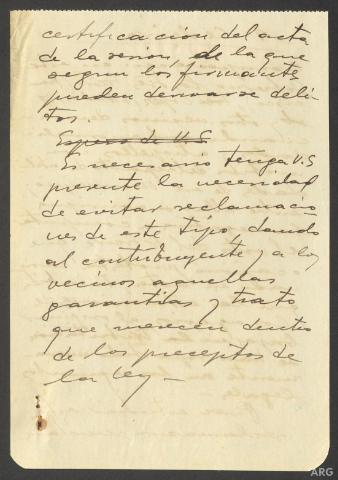 certificación del acta
de la sesión, de la que
según los firmantes
pueden derivarse deli-
tos.
Espero de U.S
Es necesario tenga V.S
presente la necesidad
de evitar reclamacio-
nes de este tipo, dando
al contribuyente y a los
vecinos aquellas
garantias y trato
que merecen dentro
de los preceptos de
la ley —
ARG